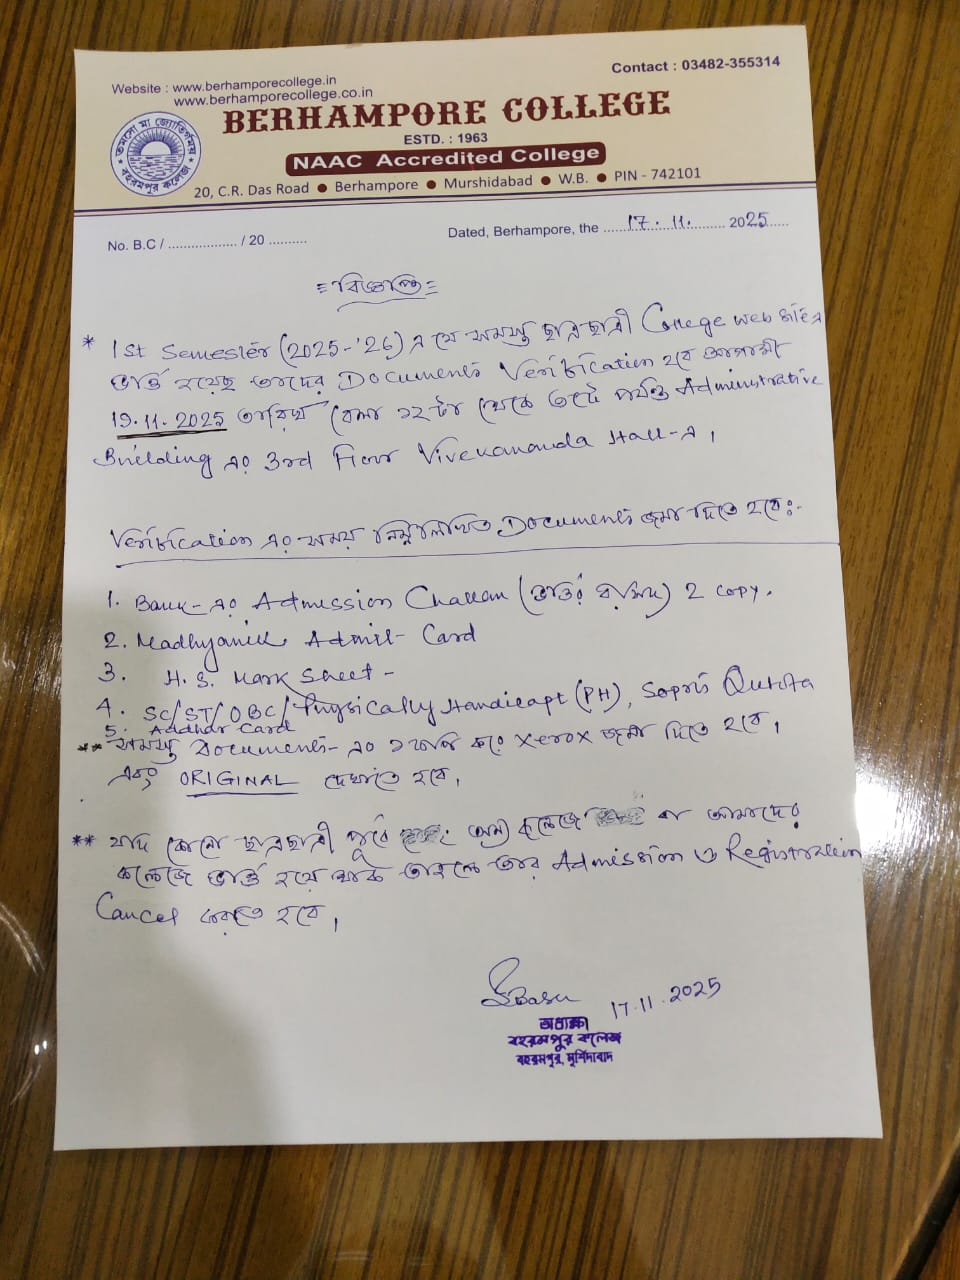 Website : www.berhamporecollege.in
www.berhamporecollege.co.in
Contact : 03482-355314
BERHAMPORE COLLEGE
ESTD. : 1963
NAAC Accredited College
20, C.R. Das Road ● Berhampore ● Murshidabad ● W.B. ● PIN - 742101
তমসো মা জ্যোতির্গময়
বহরমপুর কলেজ
No. B.C / .................. / 20 ..........
Dated, Berhampore, the 17.11. 2025
= বিজ্ঞপ্তি =
* 1st Semester (2025-'26) এ যে সমস্ত ছাত্রছাত্রী College web site এ
ভর্তি হয়েছে তাদের Documents Verification হবে আগামী
19.11.2025 তারিখ বেলা ১২টা থেকে ৩টে পর্যন্ত Administrative
Building এর 3rd Floor Vivekananda Hall-এ।
Verification এর সময় নিম্নলিখিত Documents জমা দিতে হবে:-
1. Bank-এর Admission Challan (ভর্তির রসিদ) 2 copy.
2. Madhyamik Admit Card
3. H.S. Mark Sheet -
4. SC/ST/OBC/Physically Handicapt (PH), Soprts Qutota
5. Aadhar Card
** সমস্ত Documents-এর ১ কপি করে Xerox জমা দিতে হবে।
এবং ORIGINAL দেখাতে হবে।
** যদি কোনো ছাত্রছাত্রী পূর্বে অন্য কলেজে বা আমাদের
কলেজে ভর্তি হয়ে থাকে তাহলে তার Admission ও Registration
Cancel করতে হবে।
SBasu 17.11.2025
অধ্যক্ষা
বহরমপুর কলেজ
বহরমপুর, মুর্শিদাবাদ